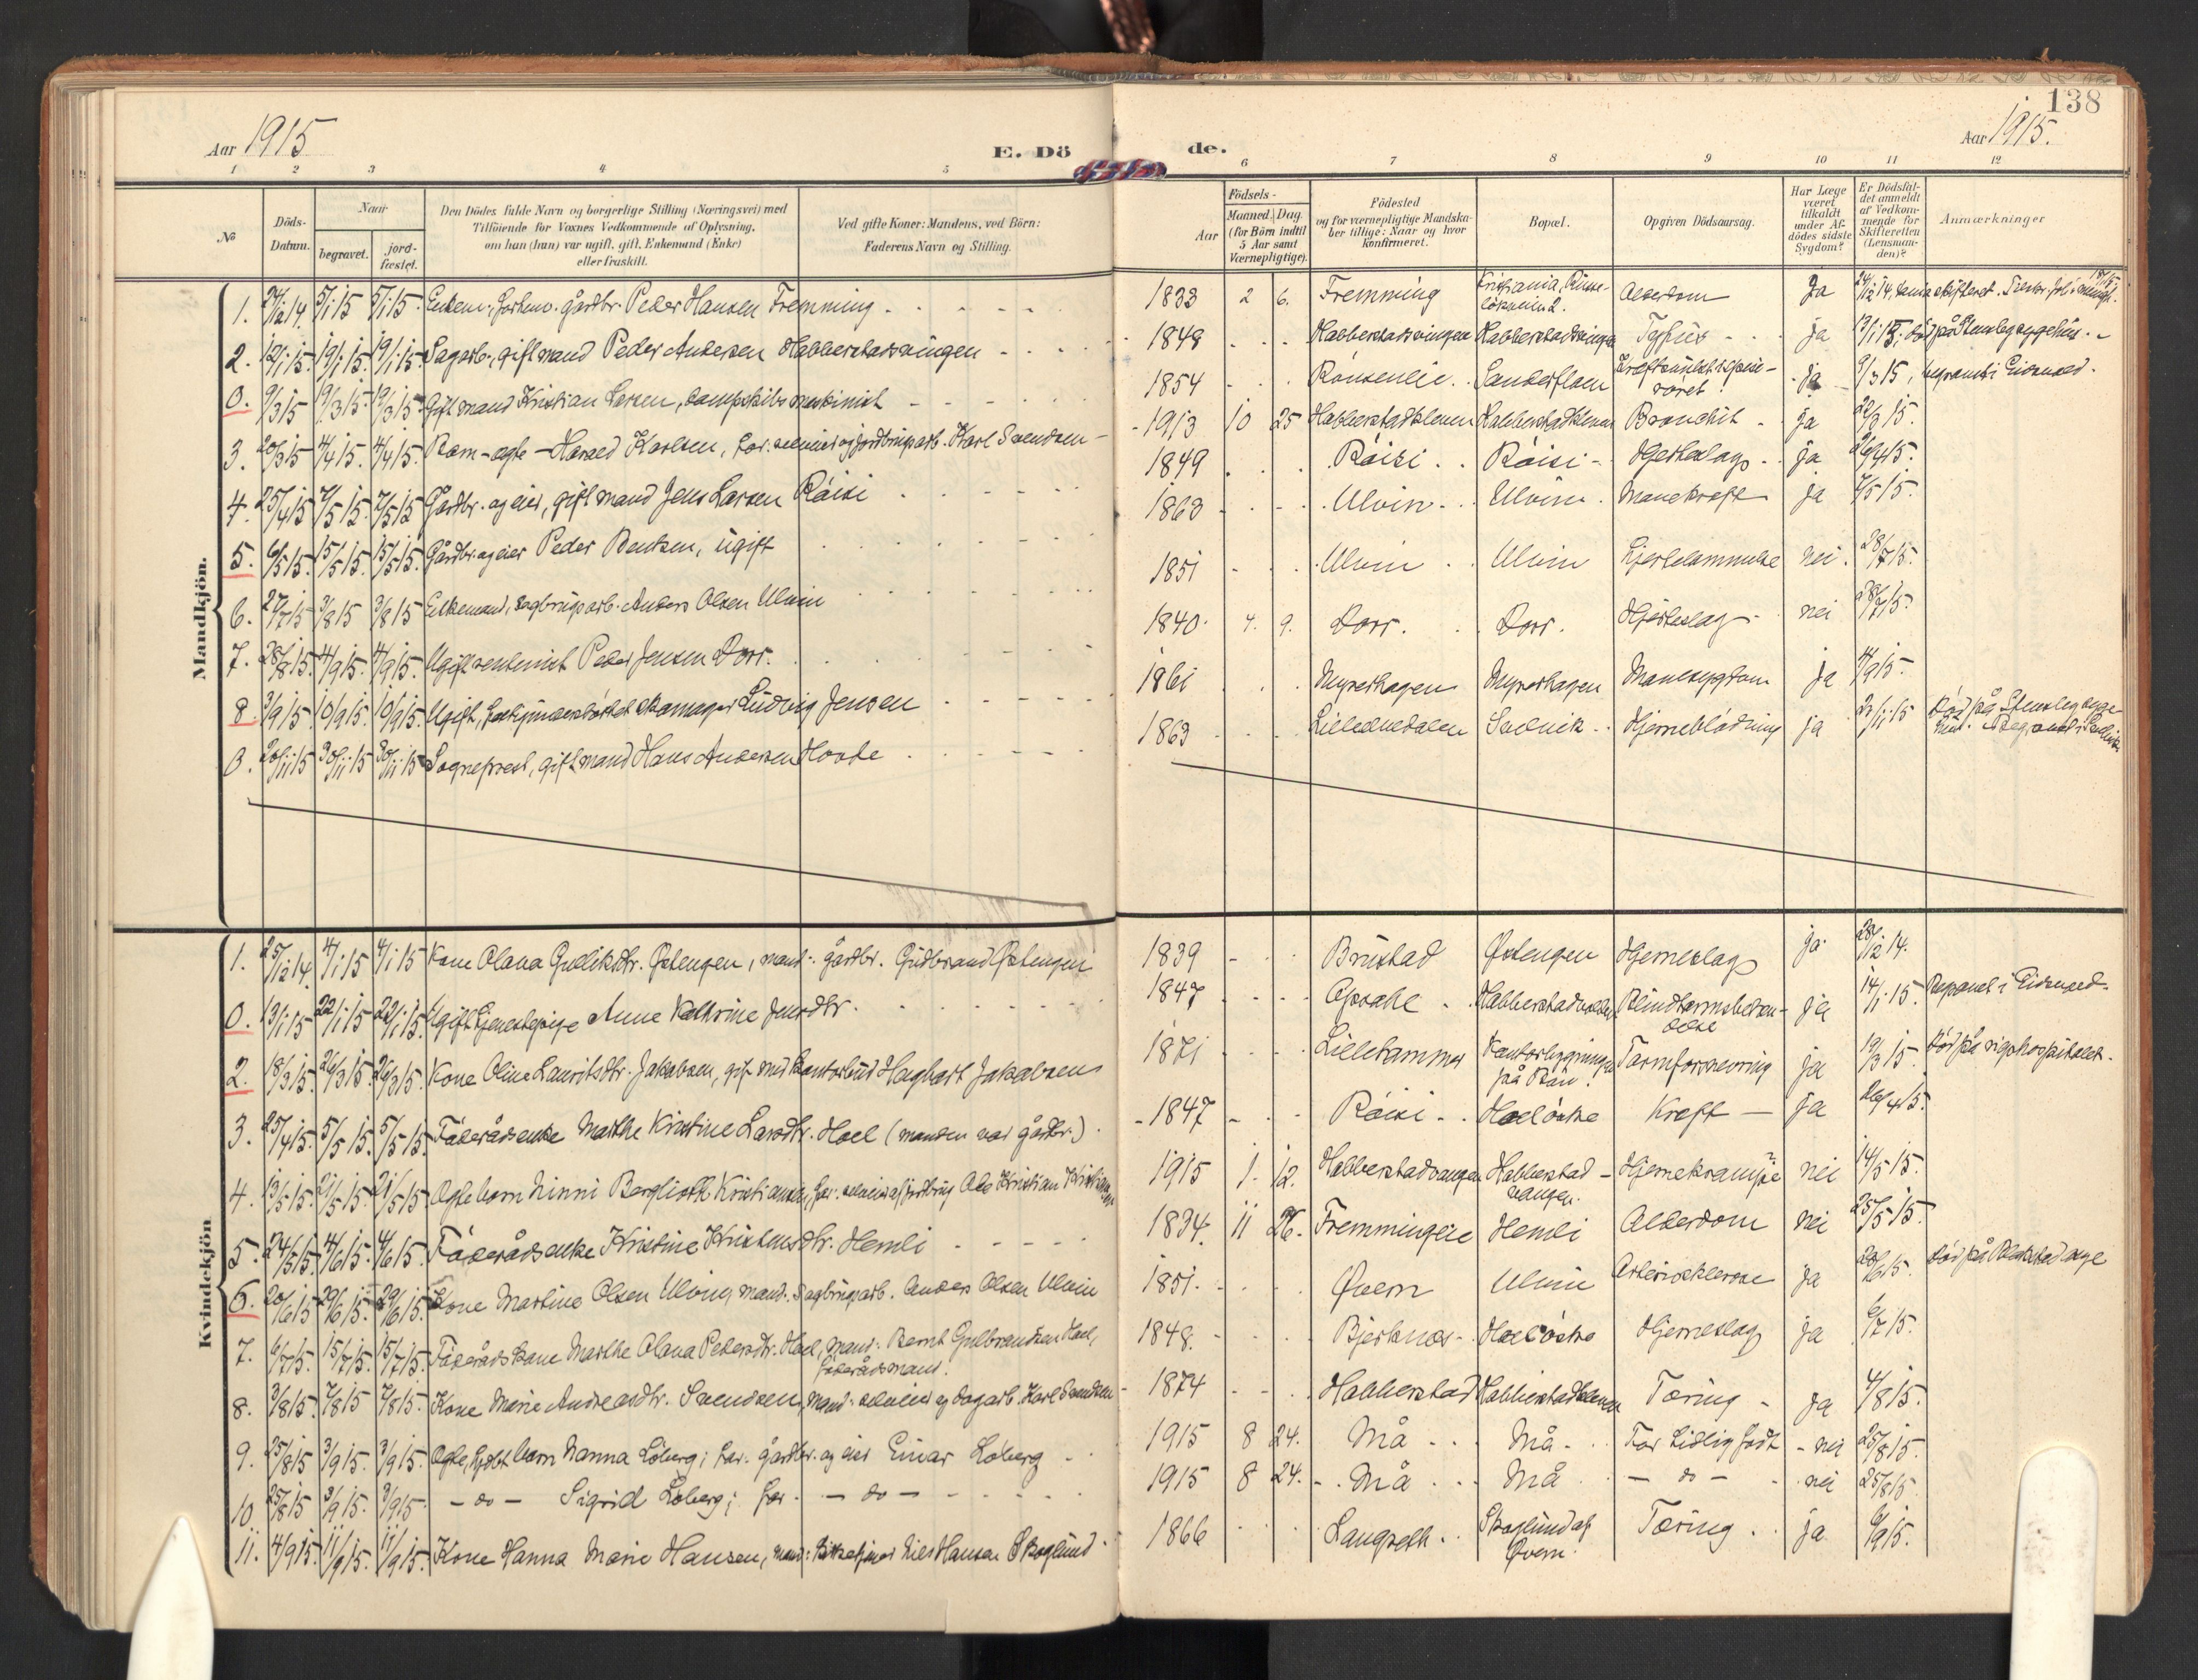 138
Aar 1915
E. Dö
de.
Aar 1915.
1 2 3 4 5 6 7 8 9 10 11 12
No
Döds-
Datum.
Naar
begravet.
jord-
fæstet.
Den Dödes fulde Navn og borgerlige Stilling (Næringsvei) med
Tilföiende for Voxnes Vedkommende af Oplysning,
om han (hun) var ugift, gift, Enkemand (Enke)
eller fraskilt.
Ved gifte Koner: Mandens, ved Börn:
Faderens Navn og Stilling.
Födsels-
Aar
Maaned. Dag.
(for Börn indtil
5 Aar samt
Værnepligtige).
Födested
og for værnepligtige Mandska-
ber tillige: Naar og hvor
konfirmeret.
Bopæl.
Opgiven Dödsaarsag.
Har Læge
været
tilkaldt
under Af-
dödes sidste
Sygdom?
Er Dödsfal-
det anmeldt
af Vedkom-
mende for
Skifteretten
(Lensman-
den)?
Anmærkninger
Mandkjön.
1. 24/12 14. 5/1 15 5/1 15. gårdbr. Peder Hansen Fremming 1833 2 6. Fremming Kristiania, Alderdom Ja 24/12 14.
2. 12/1 15. 19/1 15. 19/1 15. Sagarb., gift mand Peder Andersen Habberstadvingen 1848 Habberstadvingen Habberstadvingen Tyfus ja 13/1 15. död på Stensby sygehus.
0. 9/3 15 19/3 15. 19/3 15. Gift mand Kristian Larsen, dampskibsmaskinist 1854 Sanderfloen Kræftsvulst i spise-
röret. Ja 9/3 15, begravet i Eidsvold.
3. 20/3 15 4/4 15. 4/4 15. Barn - ægte - Harald Karlsen, far: selveier og jordbrugsarb. Karl Svendsen 1913 10 25 Habberstadkleven Habberstadkleven Bronchit ja 22/3 15.
4. 25/4 15 7/5 15. 7/5 15 Gårdbr. og eier, gift mand Jens Larsen Röisi 1849 Röisi Röisi Hjerteslag ja 26/4 15.
5. 6/5 15. 15/5 15. 15/5 15. Gårdbr. og eier Peder Bentsen, ugift 1863 Ulvin Ulvin Mavekræft ja 7/5 15.
6. 27/7 15 3/8 15 3/8 15 Enkemand, sagbrugsarb. Anders Olsen Ulvin 1851 Ulvin Ulvin Hjertelammelse nei. 28/7 15.
7. 28/8 15. 4/9 15. 4/9 15. Ugift rentenist Peder Jensen Dorr. 1840 4. 9. Dorr. Dorr. Hjerteslag nei 28/7 15.
8. 3/9 15. 10/9 15. 10/9 15. Ugift, skomager Ludvig Jensen 1861 Myrerhagen Myrerhagen Mavesygdom ja 4/9 15.
0. 20/11 15 30/11 15 30/11 15 Sogneprest, gift mand Hans Andersen Hovde 1863 Lilleelvedalen Sælvik Hjerneblödning ja 23/11 15 Död på Stensby syge
hus. Begravet i
Kvindekjön
1. 25/12 14. 4/1 15 4/1 15 Kone Olava Gulliksdtr. Østengen, mand: gårdbr. Gudbrand Østengen 1839 Brustad Østengen Hjerneslag ja 28/12 14.
0. 13/1 15 22/1 15 22/1 15. Ugift tjenestepige Anne Kathrine Jensdtr. 1847 Opsahl Blindtarmsbetæn-
delse ja 14/1 15. Begravet i Eidsvold.
2. 18/3 15. 26/3 15 26/3 15. Kone Oline Lauritsdtr. Jakobsen, gift med kontorbud Hagbart Jakobsen 1871 Lillehammer Kontorbygningen
på Bön. Tarmforsnevring ja 19/3 15. död på rigshospitalet.
3. 25/4 15. 5/5 15. 5/5 15. Föderådsenke Marthe Kristine Larsdtr. Hoel (manden var gårdbr.) 1847 Röisi Hoel östre Kræft ja 26/4 15.
4. 13/5 15. 21/5 15. 21/5 15 Ægte barn Ninni Berglioth Kristiansen, far: Ole Kristian 1915 1. 12. Habberstadvangen Habberstad-
vangen. Hjernekrampe nei 14/5 15.
5. 24/5 15. 4/6 15. 4/6 15. Föderådsenke Kristine Kristensdtr. Hemli 1834. 11 26. Fremmingeie Hemli Alderdom nei 25/5 15.
6. 20/6 15 29/6 15. 29/6 15. Kone Martine Olsen Ulvin, mand: Sagbrugsarb. Anders Olsen Ulvin 1851. Øvern Ulvin Arteriosklerose ja 20/6 15. Död på Blakstad asyl
7. 6/7 15. 15/7 15. 15/7 15. Föderådskone Marthe Olava Pedersdtr. Hoel, mand: Bernt Gulbrandsen Hoel,
föderådsmand. 1848. Bjerknes Hoel östre Hjerneslag ja 6/7 15.
8. 3/8 15. 7/8 15 7/8 15. Kone Marie Andreasdtr. Svendsen, mand: selveier og dagarb. Karl Svendsen 1874 Habberstad Habberstadkleven Tæring ja 4/8 15.
9. 25/8 15 3/9 15. 3/9 15. Ægte, hjdöbt barn Nanna Loberg; far: gårdbr. og eier Einar Loberg 1915 8 24. Må Må For tidlig födt nei 25/8 15.
10 25/8 15 3/9 15. 3/9 15. - do - Sigrid Loberg; far - do - 1915 8 24. Må Må - do - nei 25/8 15.
11. 4/9 15. 11/9 15. 11/9 15. Kone Hanna Marie Hansen, mand: Nils Hansen Skoglund 1866 Langseth Skoglund af
Øvern. Tæring ja 6/9 15.